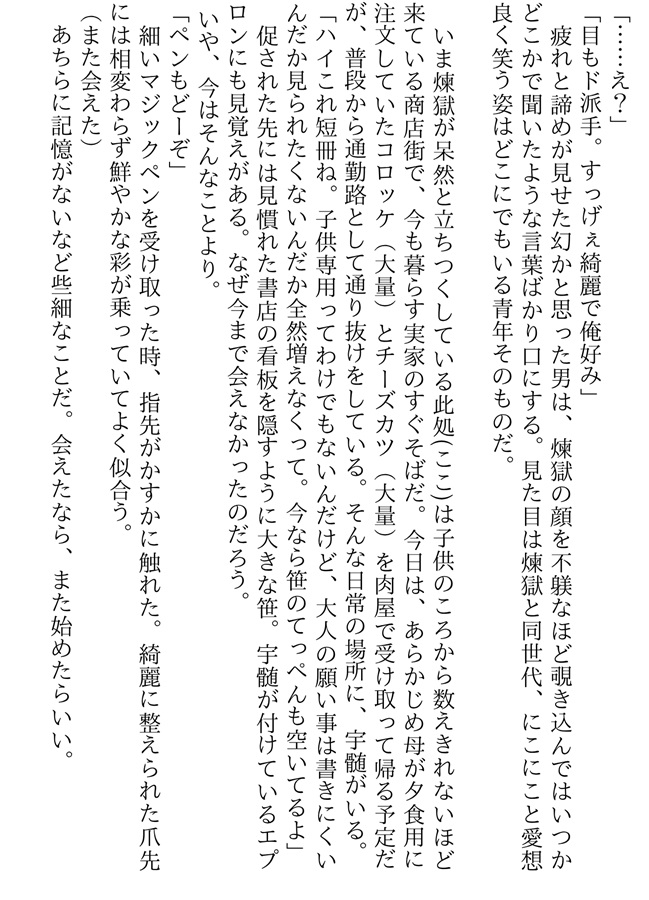 「……え？」
「目もド派手。すっげぇ綺麗で俺好み」
　疲れと諦めが見せた幻かと思った男は、煉獄の顔を不躾なほど覗き込んではいつか
どこかで聞いたような言葉ばかり口にする。見た目は煉獄と同世代、にこにこと愛想
良く笑う姿はどこにでもいる青年そのものだ。
　いま煉獄が呆然と立ちつくしている此処(ここ)は子供のころから数えきれないほど
来ている商店街で、今も暮らす実家のすぐそばだ。今日は、あらかじめ母が夕食用に
注文していたコロッケ（大量）とチーズカツ（大量）を肉屋で受け取って帰る予定だ
が、普段から通勤路として通り抜けをしている。そんな日常の場所に、宇髄がいる。
「ハイこれ短冊ね。子供専用ってわけでもないんだけど、大人の願い事は書きにくい
んだか見られたくないんだか全然増えなくって。今なら笹のてっぺんも空いてるよ」
　促された先には見慣れた書店の看板を隠すように大きな笹。宇髄が付けているエプ
ロンにも見覚えがある。なぜ今まで会えなかったのだろう。
　いや、今はそんなことより。
「ペンもどーぞ」
　細いマジックペンを受け取った時、指先がかすかに触れた。綺麗に整えられた爪先
には相変わらず鮮やかな彩が乗っていてよく似合う。
（また会えた）
　あちらに記憶がないなど些細なことだ。会えたなら、また始めたらいい。